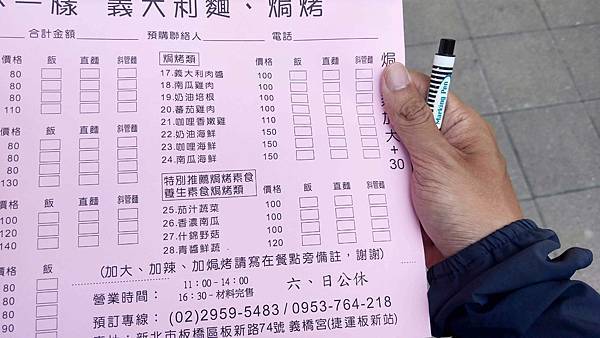 不一樣 義大利麵、焗烤
合計金額 預購聯絡人 電話
價格 飯 直麵 斜管麵 焗烤類 價格 飯 直麵 斜管麵
80 17.義大利肉醬 100
80 18.南瓜雞肉 100
80 19.奶油培根 100
110 20.蕃茄雞肉 100
21.咖哩香嫩雞 110
價格 飯 直麵 斜管麵 22.奶油海鮮 150
80 23.咖哩海鮮 150
80 24.南瓜海鮮 150
80
130 特別推薦焗烤素食
養生素食焗烤類 價格 飯 直麵 斜管麵
價格 飯 直麵 斜管麵
100 25.茄汁蔬菜 100
100 26.香濃南瓜 100
120 27.什錦野菇 100
140 28.青醬鮮蔬 120
焗
加大+30
Marking Pen
(加大、加辣、加焗烤請寫在餐點旁備註，謝謝)
價格 飯 直麵 斜管麵
80
80
80
90
營業時間： 11：00－14：00
16：30－材料完售 六、日公休
預訂專線： (02)2959-5483 / 0953-764-218
地址：新北市板橋區板新路74號 義橋宮(捷運板新站)